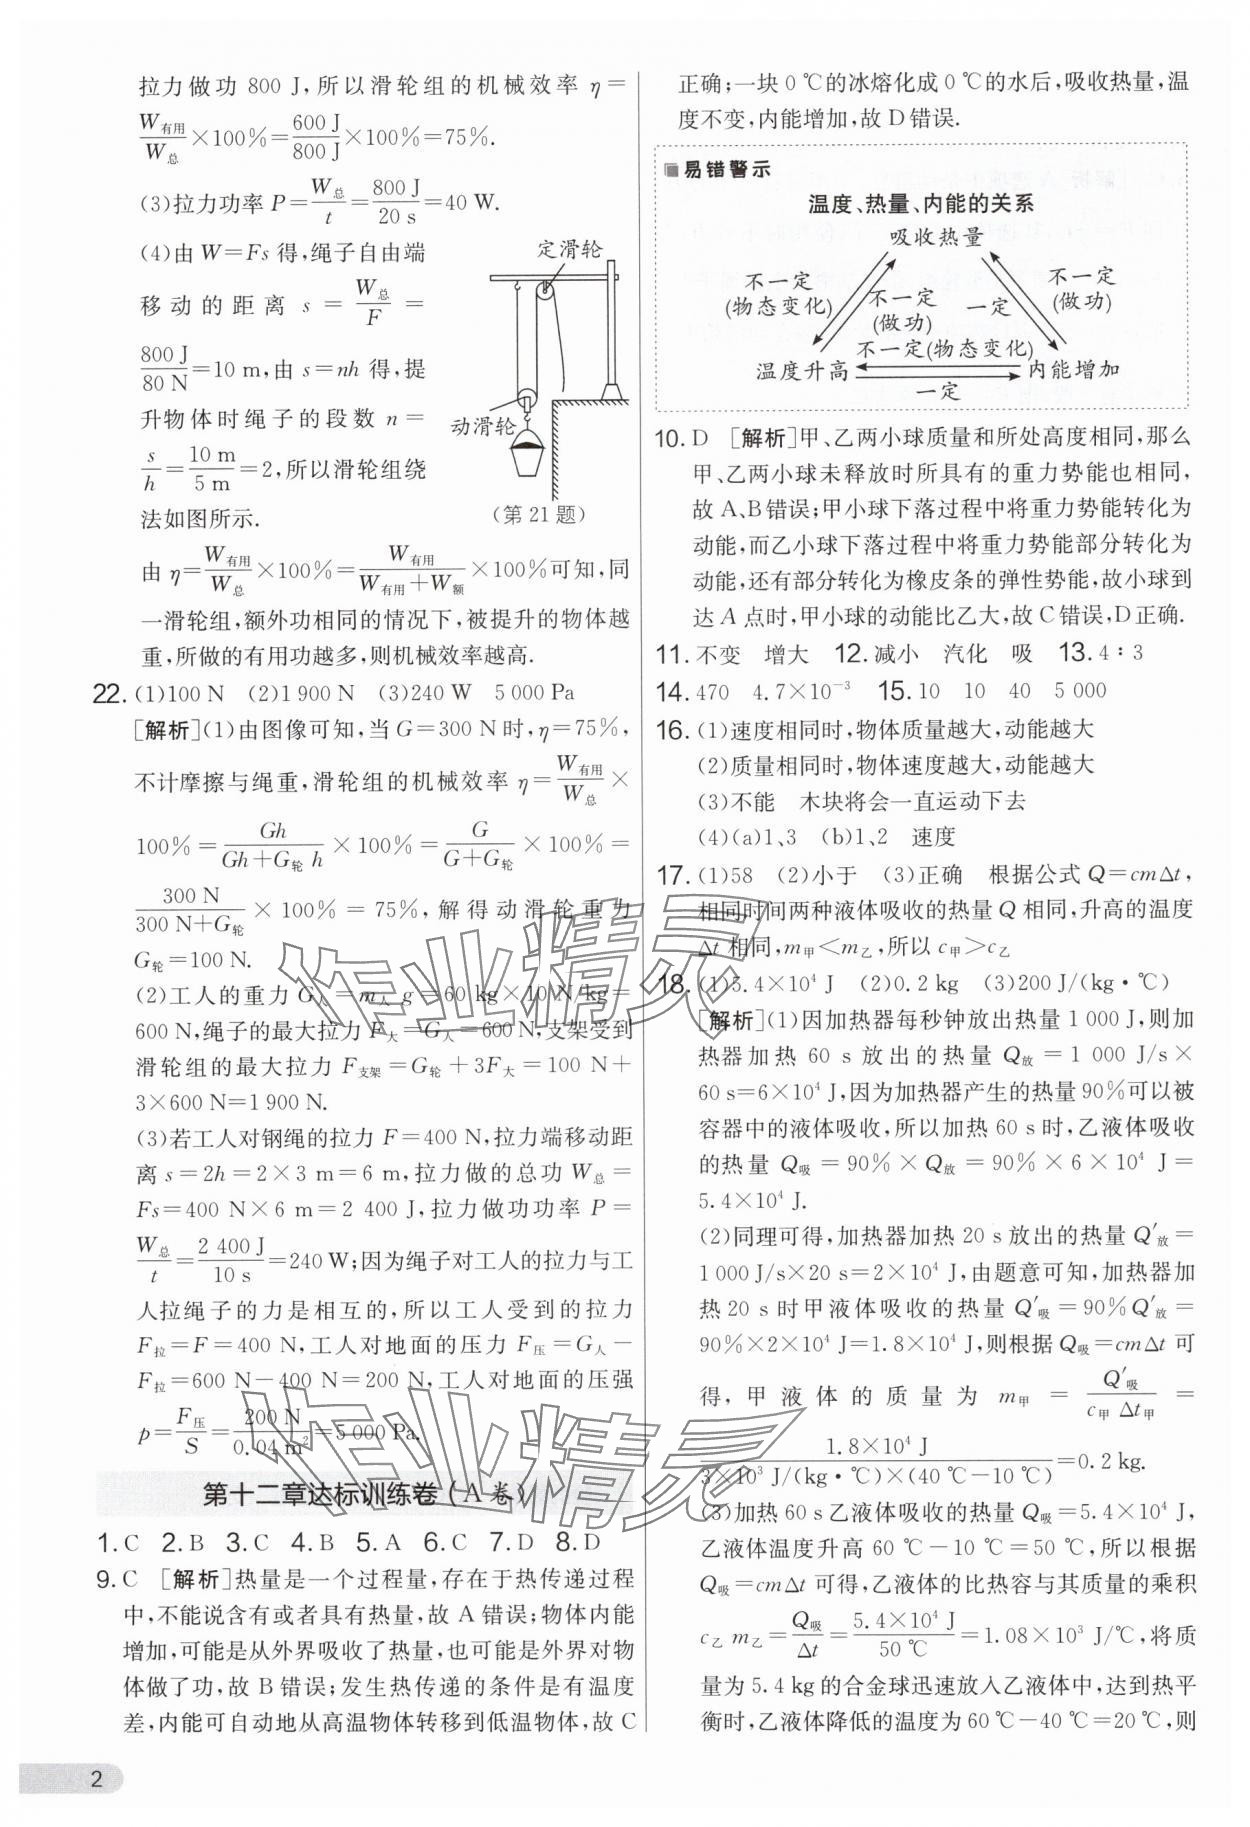 拉力做功 800 J,所以滑轮组的机械效率 η=
W有用/W总×100%=600 J/800 J×100%=75%.
(3)拉力功率 P=W总/t=800 J/20 s=40 W.
(4)由 W=Fs 得,绳子自由端
移动的距离 s=W总/F=
800 J/80 N=10 m,由 s=nh 得,提
升物体时绳子的段数 n=
s/h=10 m/5 m=2,所以滑轮组绕
法如图所示.
定滑轮
动滑轮
(第 21 题)
由 η=W有用/W总×100%=W有用/(W有用+W额)×100%可知,同
一滑轮组,额外功相同的情况下,被提升的物体越
重,所做的有用功越多,则机械效率越高.
22. (1)100 N (2)1 900 N (3)240 W 5 000 Pa
[解析](1)由图像可知,当 G=300 N 时,η=75%,
不计摩擦与绳重,滑轮组的机械效率 η=W有用/W总×
100%=Gh/(Gh+G轮 h)×100%=G/(G+G轮)×100%=
300 N/(300 N+G轮)×100%=75%,解得动滑轮重力
G轮=100 N.
(2)工人的重力 G人=m人 g=60 kg×10 N/kg=
600 N,绳子的最大拉力 F大=G人=600 N,支架受到
滑轮组的最大拉力 F支架=G轮+3F大=100 N+
3×600 N=1 900 N.
(3)若工人对钢绳的拉力 F=400 N,拉力端移动距
离 s=2h=2×3 m=6 m,拉力做的总功 W总=
Fs=400 N×6 m=2 400 J,拉力做功功率 P=
W总/t=2 400 J/10 s=240 W;因为绳子对工人的拉力与工
人拉绳子的力是相互的,所以工人受到的拉力
F拉=F=400 N,工人对地面的压力 F压=G人-
F拉=600 N-400 N=200 N,工人对地面的压强
p=F压/S=200 N/0.04 m²=5 000 Pa.
第十二章达标训练卷(A 卷)
1. C 2. B 3. C 4. B 5. A 6. C 7. D 8. D
9. C [解析]热量是一个过程量,存在于热传递过程
中,不能说含有或者具有热量,故 A 错误;物体内能
增加,可能是从外界吸收了热量,也可能是外界对物
体做了功,故 B 错误;发生热传递的条件是有温度
差,内能可自动地从高温物体转移到低温物体,故 C
正确;一块 0 ℃的冰熔化成 0 ℃的水后,吸收热量,温
度不变,内能增加,故 D 错误.
易错警示
温度、热量、内能的关系
吸收热量
不一定
(物态变化)
不一定
(做功)
一定
不一定
(做功)
不一定(物态变化)
温度升高
内能增加
一定
10. D [解析]甲、乙两小球质量和所处高度相同,那么
甲、乙两小球未释放时所具有的重力势能也相同,
故 A、B 错误;甲小球下落过程中将重力势能转化为
动能,而乙小球下落过程中将重力势能部分转化为
动能,还有部分转化为橡皮条的弹性势能,故小球到
达 A 点时,甲小球的动能比乙大,故 C 错误,D 正确.
11. 不变 增大 12. 减小 汽化 吸 13. 4∶3
14. 470 4.7×10⁻³ 15. 10 10 40 5 000
16. (1)速度相同时,物体质量越大,动能越大
(2)质量相同时,物体速度越大,动能越大
(3)不能 木块将会一直运动下去
(4)(a)1、3 (b)1、2 速度
17. (1)58 (2)小于 (3)正确 根据公式 Q=cmΔt,
相同时间两种液体吸收的热量 Q 相同,升高的温度
Δt 相同,m甲<m乙,所以 c甲>c乙
18. (1)5.4×10⁴ J (2)0.2 kg (3)200 J/(kg·℃)
[解析](1)因加热器每秒钟放出热量 1 000 J,则加
热器加热 60 s 放出的热量 Q放=1 000 J/s×
60 s=6×10⁴ J,因为加热器产生的热量 90%可以被
容器中的液体吸收,所以加热 60 s 时,乙液体吸收
的热量 Q吸=90%×Q放=90%×6×10⁴ J=
5.4×10⁴ J.
(2)同理可得,加热器加热 20 s 放出的热量 Q′放=
1 000 J/s×20 s=2×10⁴ J,由题意可知,加热器加
热 20 s 时甲液体吸收的热量 Q′吸=90%Q′放=
90%×2×10⁴ J=1.8×10⁴ J,则根据 Q吸=cmΔt 可
得,甲液体的质量为 m甲=Q′吸/(c甲 Δt甲)=
1.8×10⁴ J/(3×10³ J/(kg·℃)×(40 ℃-10 ℃))=0.2 kg.
(3)加热 60 s 乙液体吸收的热量 Q吸=5.4×10⁴ J,
乙液体温度升高 60 ℃-10 ℃=50 ℃,所以根据
Q吸=cmΔt 可得,乙液体的比热容与其质量的乘积
c乙 m乙=Q吸/Δt=5.4×10⁴ J/50 ℃=1.08×10³ J/℃,将质
量为 5.4 kg 的合金球迅速放入乙液体中,达到热平
衡时,乙液体降低的温度为 60 ℃-40 ℃=20 ℃,则
2
作业精灵
作业精灵